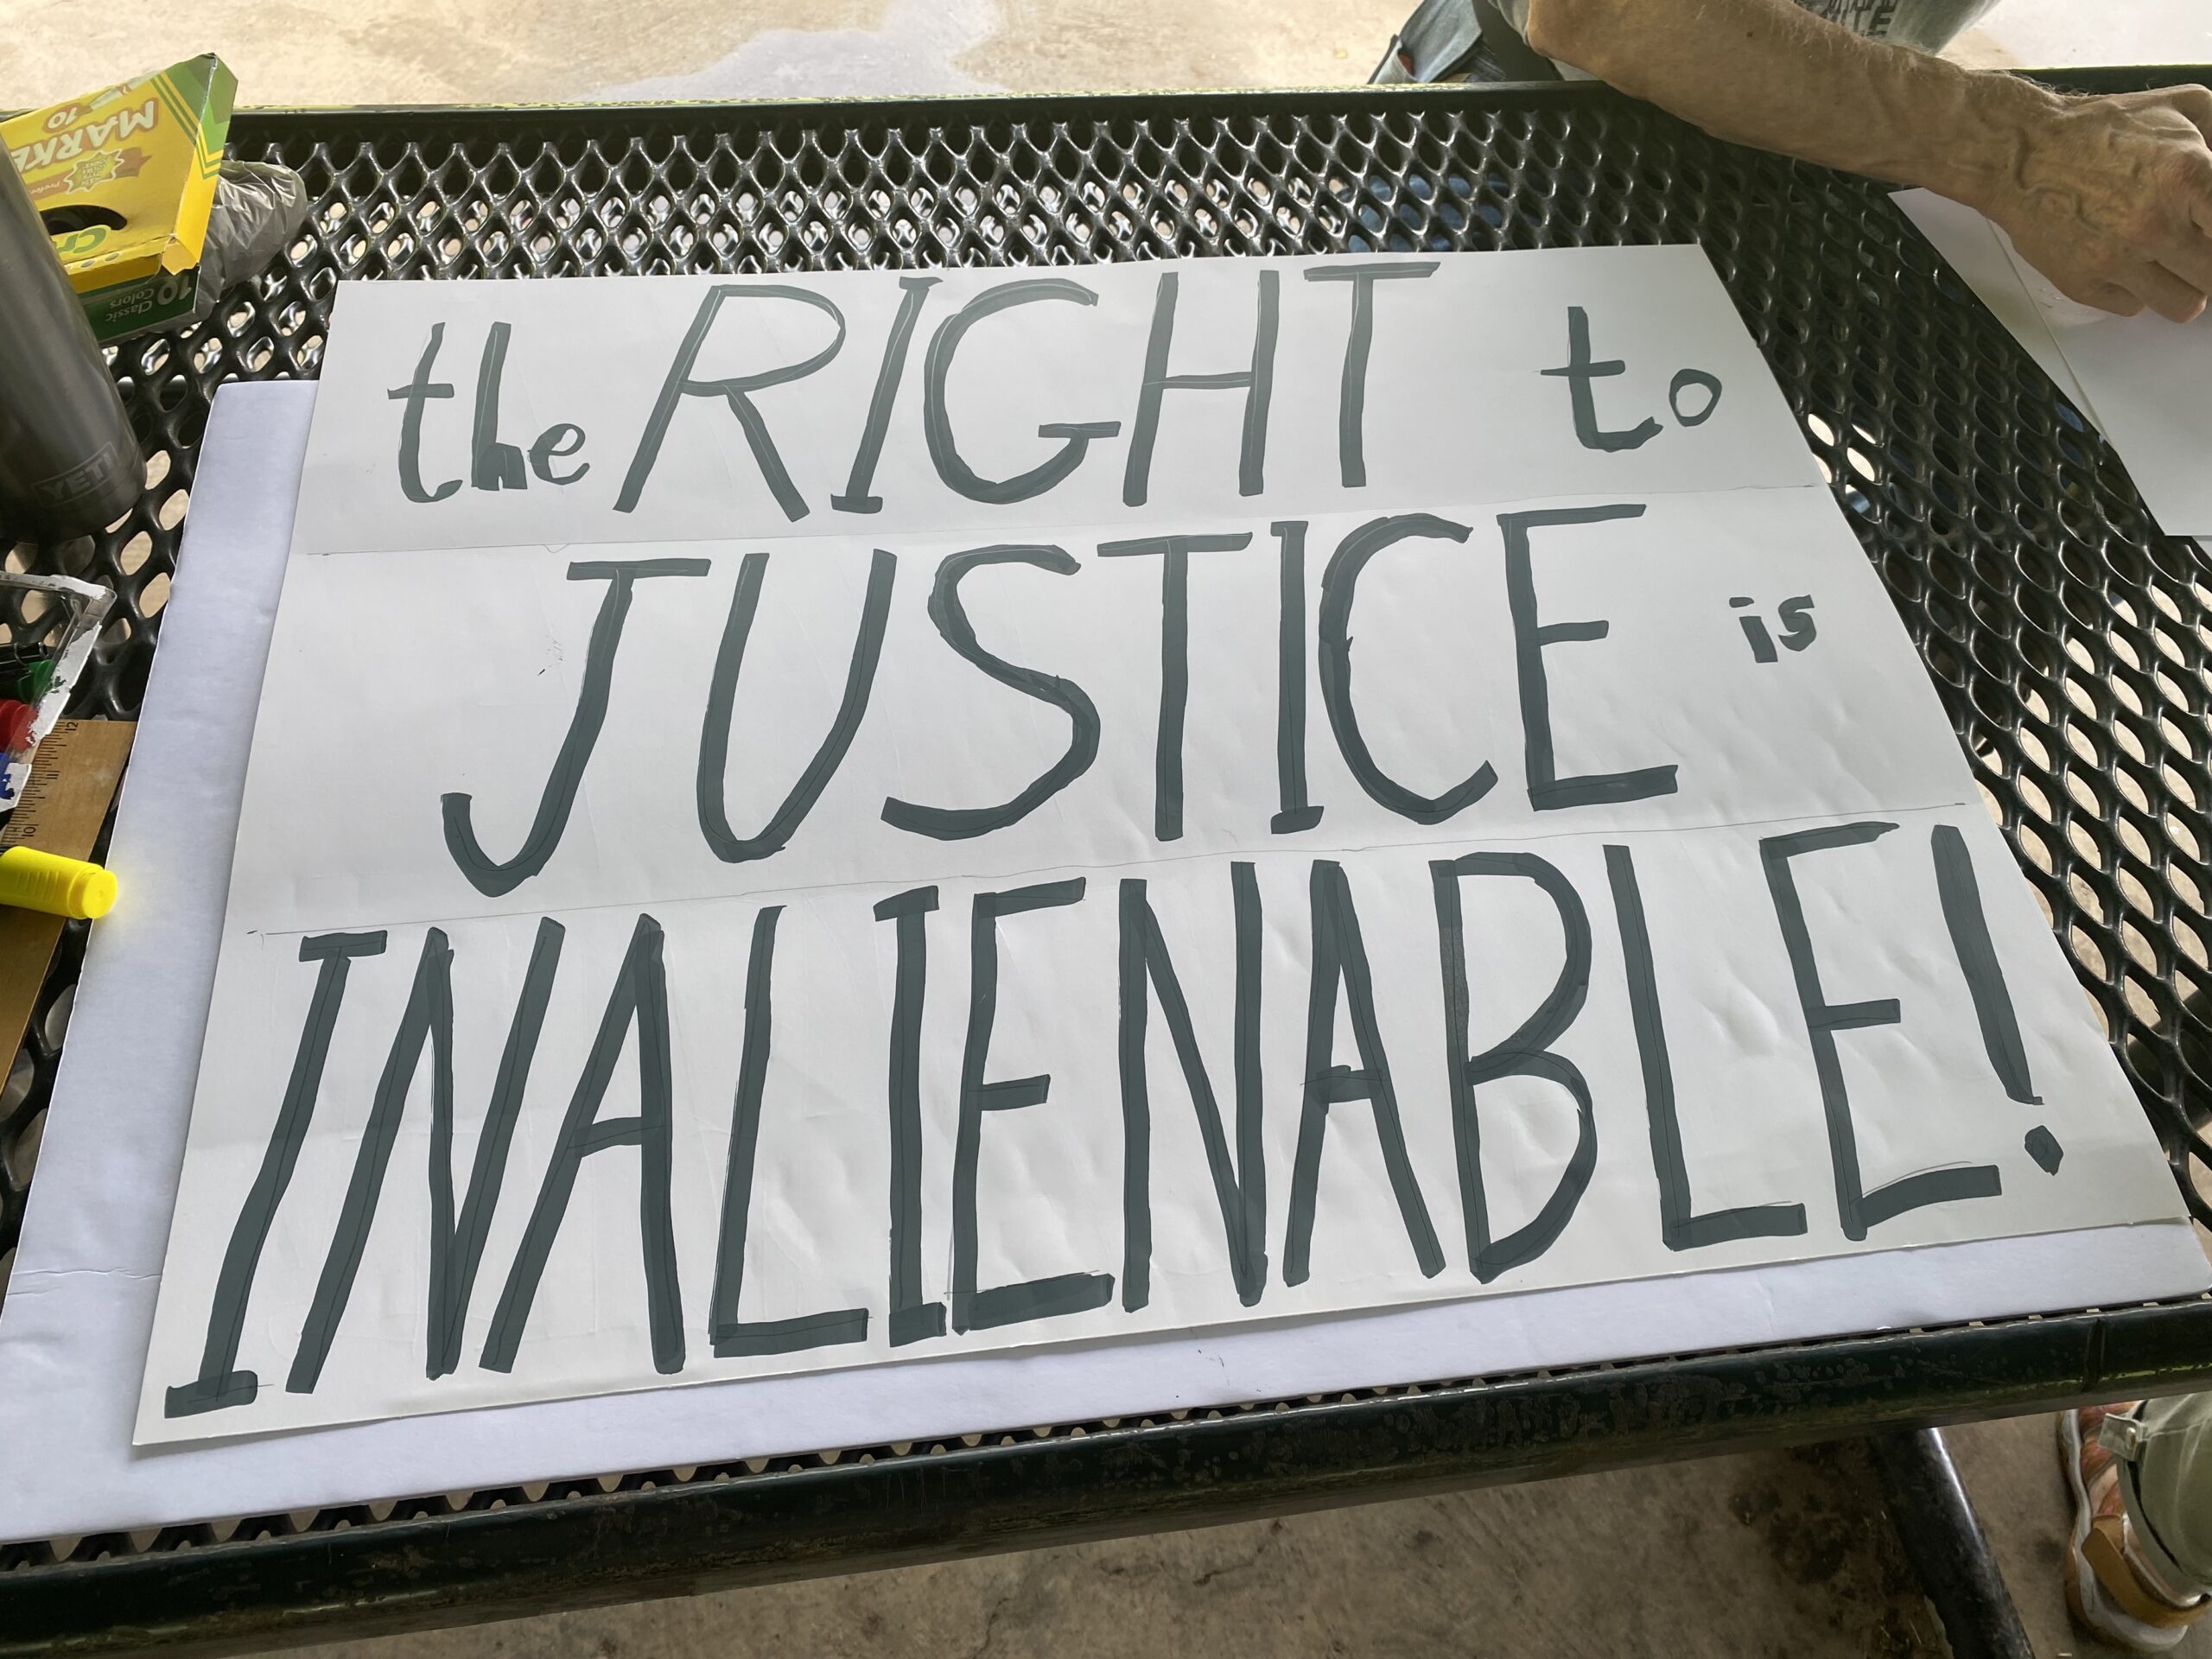 the RIGHT to
JUSTICE is
INALIENABLE!
MARKE
10
10
Classic
Colors
YETI
12
11
10